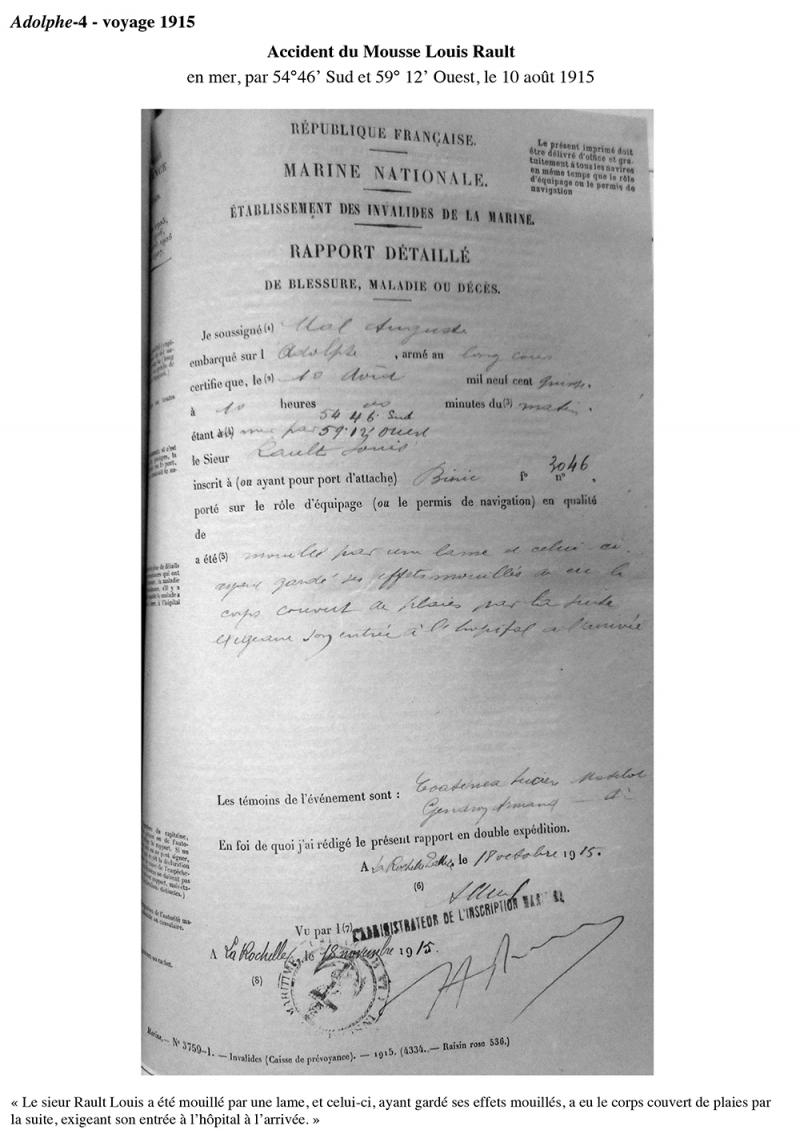 Adolphe-4 - voyage 1915
Accident du Mousse Louis Rault
en mer, par 54°46’ Sud et 59° 12’ Ouest, le 10 août 1915
RÉPUBLIQUE FRANÇAISE.
Le présent imprimé doit
être délivré d'office et gra-
tuitement à tous les navires
en même temps que le rôle
d'équipage ou le permis de
navigation
MARINE NATIONALE.
ÉTABLISSEMENT DES INVALIDES DE LA MARINE.
RAPPORT DÉTAILLÉ
DE BLESSURE, MALADIE OU DÉCÈS.
Je soussigné (1) Auguste
embarqué sur l Adolphe , armé au long cours
certifie que, le (2) 10 Août mil neuf cent quinze.
à 10 heures minutes du (3) matin.
54 46 Sud
étant à (4) mer par 59.12' Ouest
le Sieur Rault Louis
inscrit à (ou ayant pour port d'attache) Binic f° n° 3046 .
porté sur le rôle d'équipage (ou le permis de navigation) en qualité
de
a été (5) mouillé par une lame et celui-ci
ayant gardé ses effets mouillés a eu le
corps couvert de plaies par la suite
exigeant son entrée à l'hôpital a l'arrivée
Les témoins de l'événement sont : Lucien Matelot
Gendry Armand
En foi de quoi j'ai rédigé le présent rapport en double expédition.
A La Rochelle le 18 octobre 1915.
(6)
Vu par l (7) L'ADMINISTRATEUR DE L'INSCRIPTION MARITIME
A La Rochelle, le 18 novembre 1915.
(8)
Marine. — N° 3759-1. — Invalides (Caisse de prévoyance). — 1915. (4334. — Raisin rose 536.)
« Le sieur Rault Louis a été mouillé par une lame, et celui-ci, ayant gardé ses effets mouillés, a eu le corps couvert de plaies par
la suite, exigeant son entrée à l’hôpital à l’arrivée. »